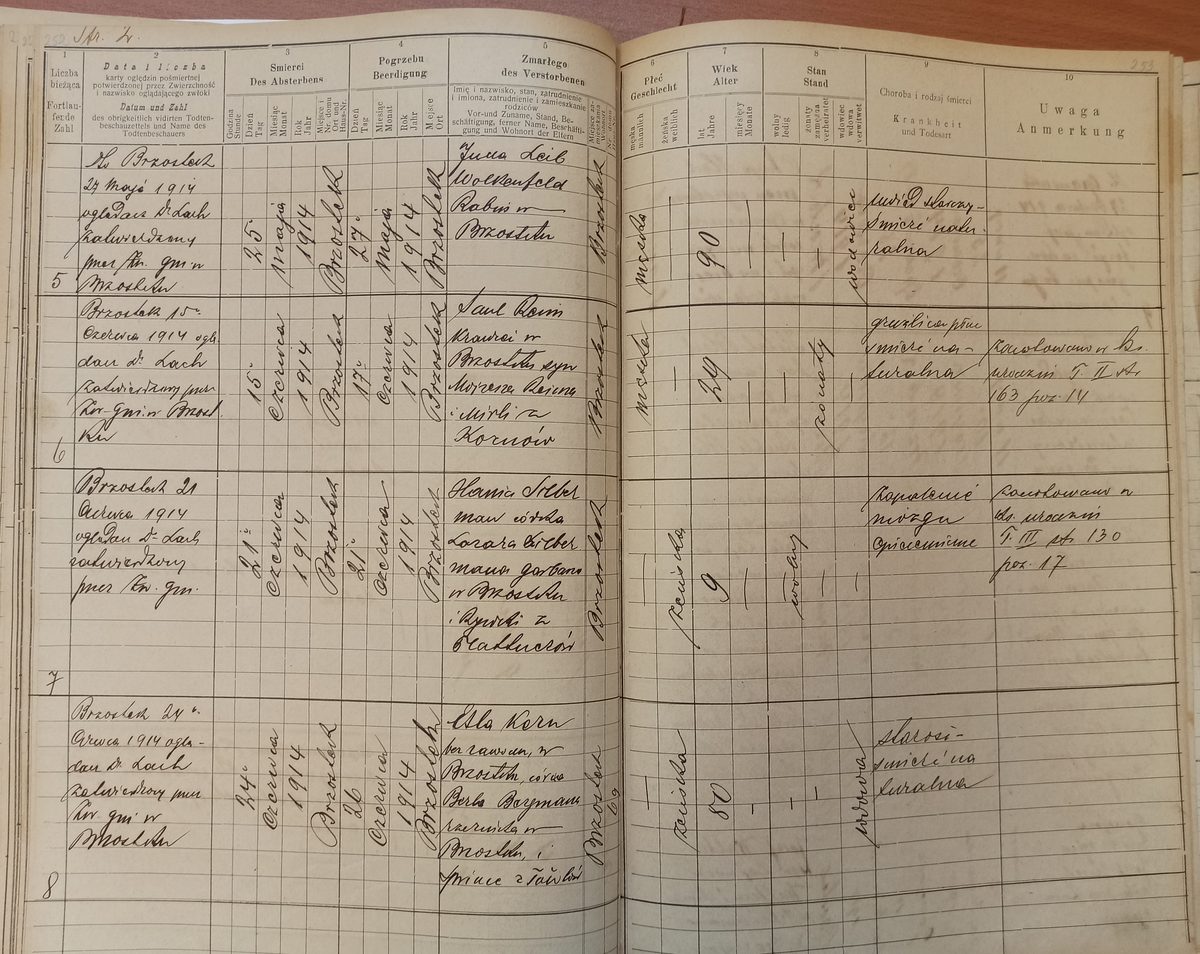 Str. 2.
253
253
1
Liczba
bieżąca
Fortlau-
fende
Zahl
2
Data i liczba
karty oględzin pośmiertnej
potwierdzonej przez Zwierzchność
i nazwisko oglądającego zwłoki
Datum und Zahl
des obrigkeitlich vidirten Todten-
beschauzettels und Name des
Todtenbeschauers
3
Śmierci
Des Absterbens
Godzina
Stunde
Dzień
Tag
Miesiąc
Monat
Rok
Jahr
Miejsce i
Nr. domu
Ort und
Haus-Nr.
4
Pogrzebu
Beerdigung
Dzień
Tag
Miesiąc
Monat
Rok
Jahr
Miejsce
Ort
5
Zmarłego
des Verstorbenen
Imię i nazwisko, stan, zatrudnienie
i imiona, zatrudnienie i zamieszkanie
rodziców
Vor-und Zuname, Stand, Be-
schäftigung, ferner Name, Beschäfti-
gung und Wohnort der Eltern
6
Płeć
Geschlecht
męska
männlich
żeńska
weiblich
7
Wiek
Alter
lat
Jahre
miesięcy
Monate
8
Stan
Stand
wolny
ledig
żonaty
zamężna
verheiratet
wdowiec
wdowa
verwitwet
9
Choroba i rodzaj śmierci
Krankheit
und Todesart
10
Uwaga
Anmerkung
5
Brzostek
27 Maja 1914
oglądacz Dr Lach
zatwierdzony
przez Zw. gm. w
Brzostku
25
Maja
1914
Brzostek
27
Maja
1914
Brzostek
Juda Leib
Wolkenfeld
Rabin w
Brzostku
Brzostek
męska
—
90
—
—
—
wdowiec
uwiąd starczy-
śmierć natu-
ralna
6
Brzostek 15
Czerwca 1914 oglą-
dacz Dr Lach
zatwierdzony przez
Zw. gm. w Brzost
ku
15
Czerwca
1914
Brzostek
17
Czerwca
1914
Brzostek
Saul Reim
krawiec w
Brzostku syn
Mojżesza Reima
i Mirli z
Kornów
Brzostek
męska
—
29
—
—
żonaty
—
gruźlica płuc
śmierć na-
turalna
zanotowano w ks.
urodzin T. II str
163 poz. 14
7
Brzostek 21
Czerwca 1914
oglądacz Dr Lach
zatwierdzony
przez Zw. gm.
21
Czerwca
1914
Brzostek
21
Czerwca
1914
Brzostek
Hania Silber
man córka
Lazara Silber
mana garbarza
w Brzostku
i Rywki z
Brzostek
—
żeńska
9
—
wolny
—
—
Zapalenie
mózgu
epidemiczne
zanotowano w
ks. urodzin
T. III str 130
poz. 17
8
Brzostek 24
Czerwca 1914 oglą-
dacz Dr Lach
zatwierdzony przez
Zw. gm. w
Brzostku
24
Czerwca
1914
Brzostek
26
Czerwca
1914
Brzostek
Etla Korn
bez zawodu, w
Brzostku, córka
Berla Bergmana
rzeźnika w
Brzostku, i
Brzostek
69
—
żeńska
80
-
-
—
wdowa
starość-
śmierć na
turalna